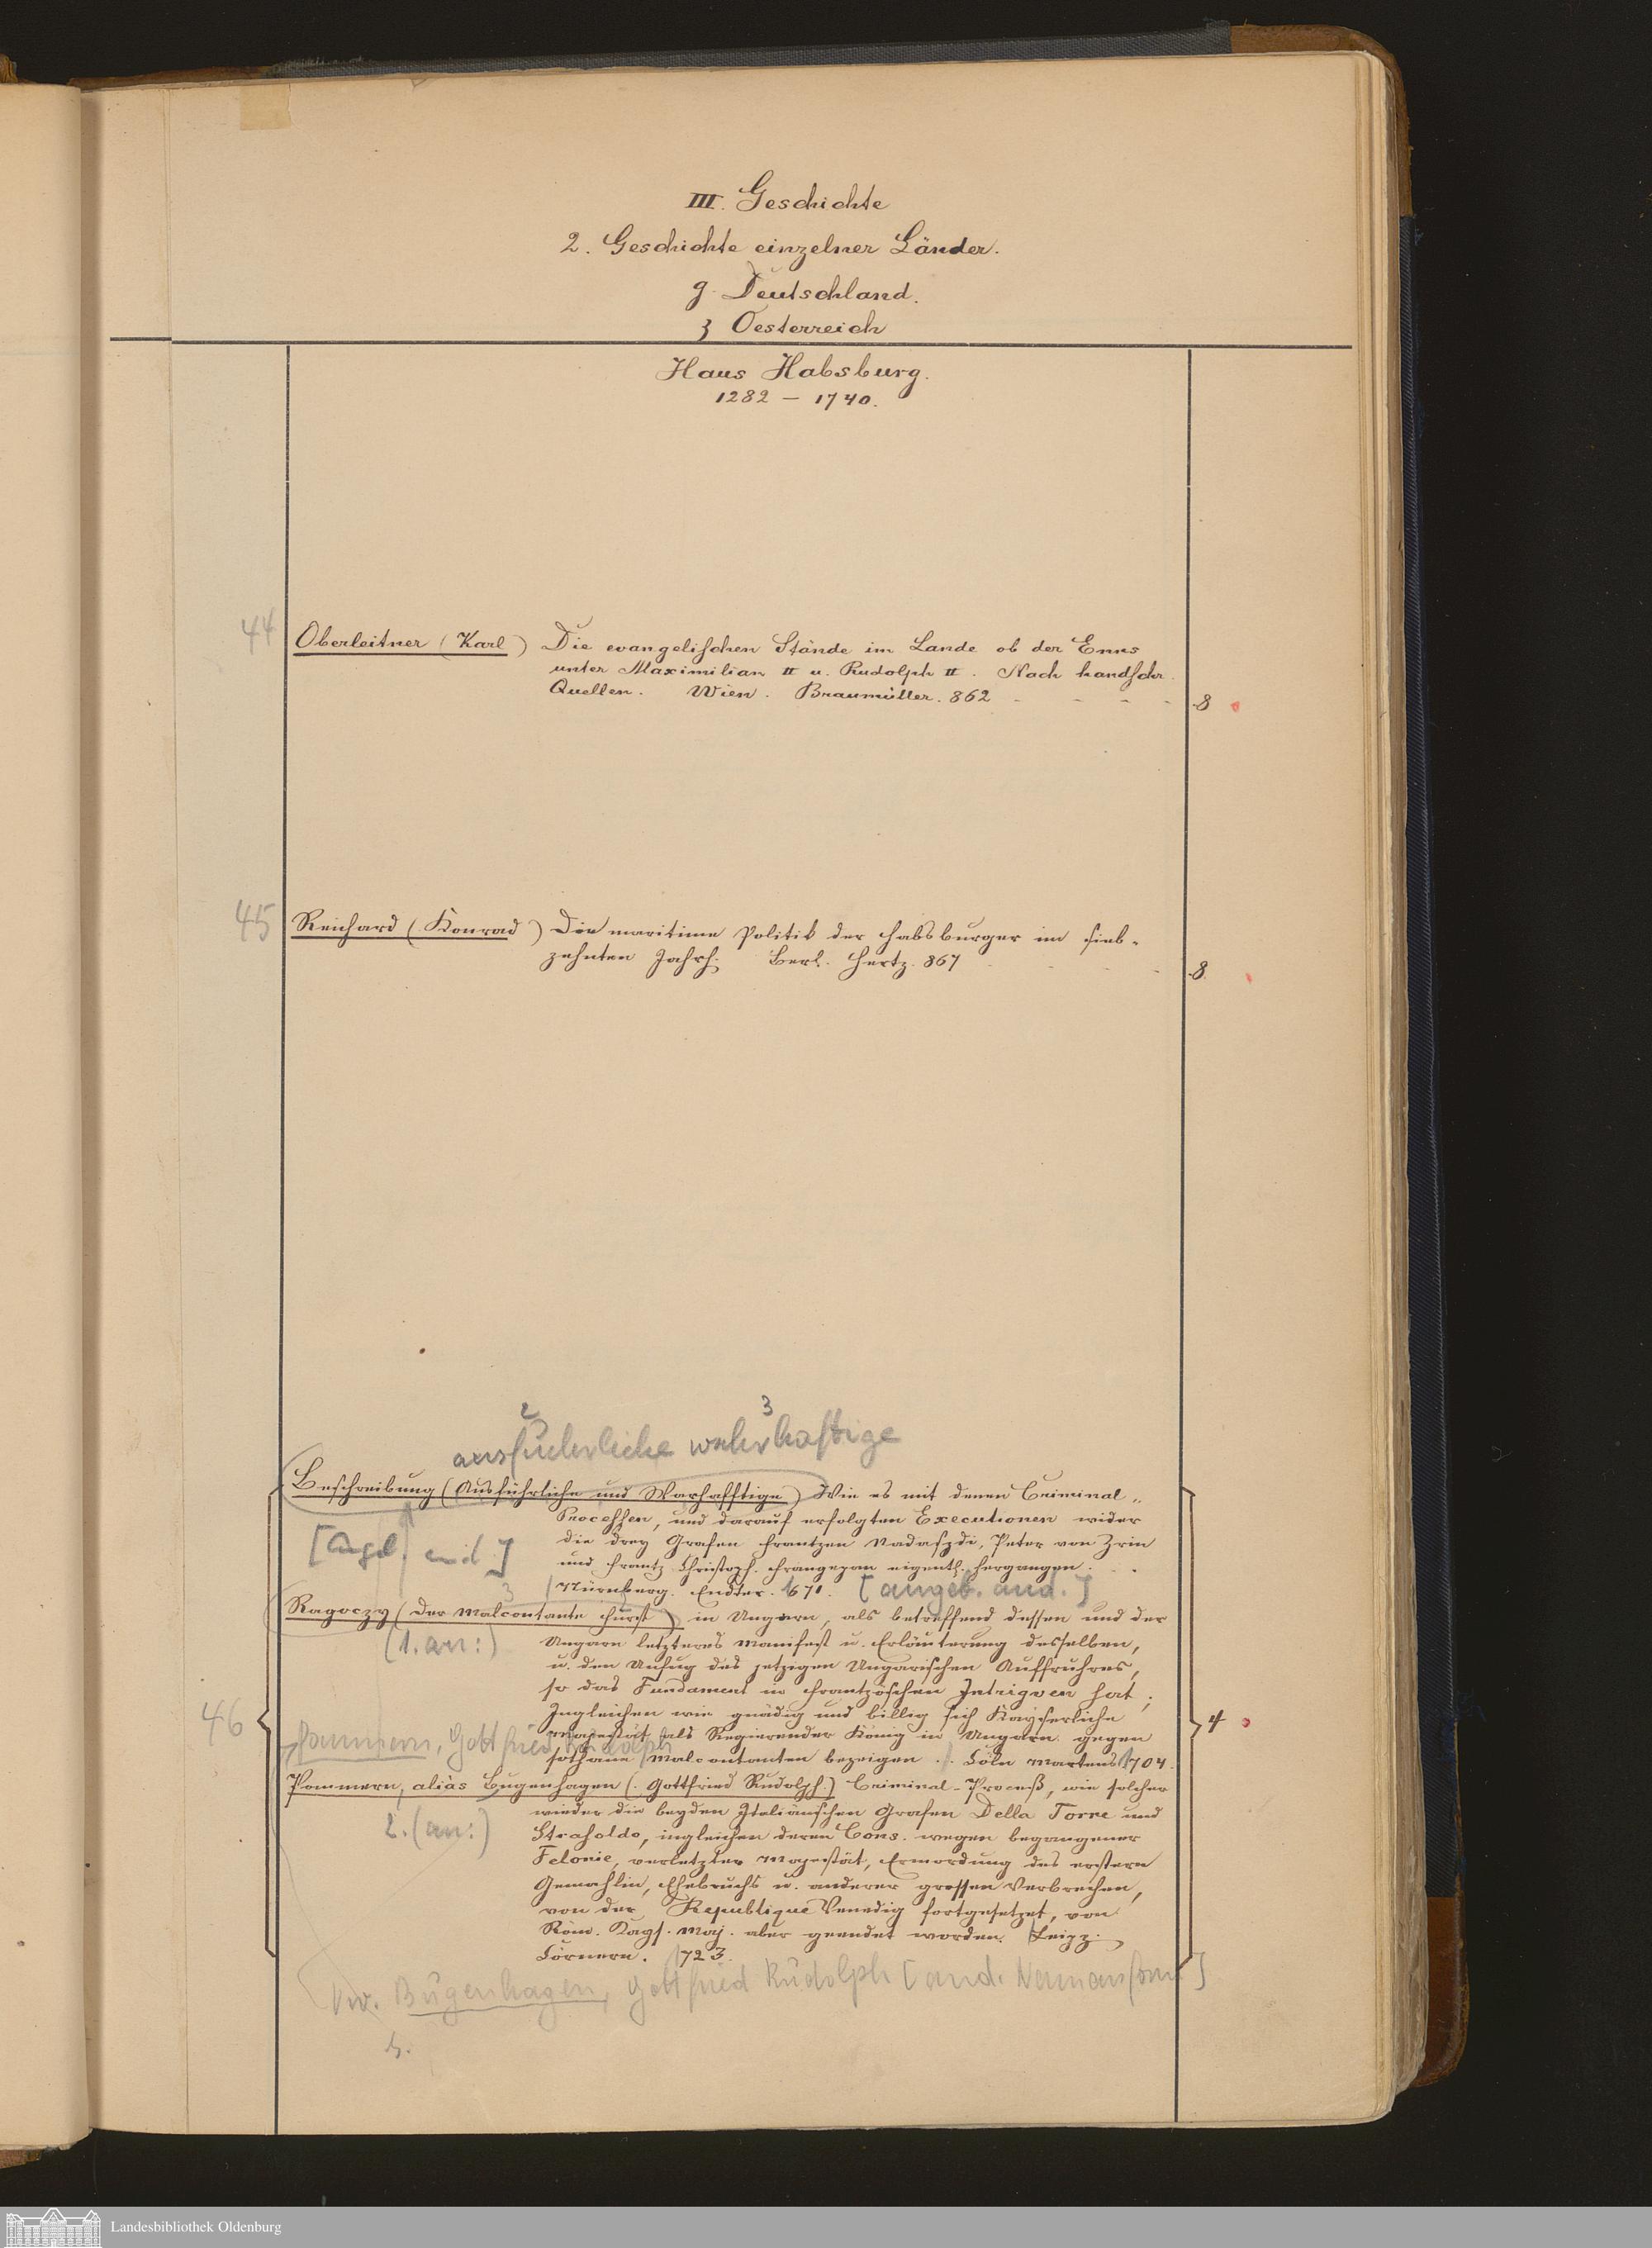 III. Geschichte
2. Geschichte einzelner Länder.
g. Deutschland.
ʒ Oesterreich
Haus Habsburg.
1282 – 1740.
44
Oberleitner (Karl) Die evangelischen Stände im Lande ob der Enns
unter Maximilian II u. Rudolph II. Nach handschr.
Quellen. Wien. Braumüller. 862 - - - - 8
45
Reichard (Konrad) Die maritime Politik der Habsburger im sieb-
zehnten Jahrh. Berl. Hertz. 867 - - - 8.
2 3
ausführliche wahrhaftige
Beschreibung (Ausführliche und Warhafftige) Wie es mit denen Criminal-
Processen, und darauf erfolgten Executionen wider
die drey Grafen Frantzen Nadaszdi, Peter von Zrin
und Frantz Christoph. Frangepan eigentl. hergangen . . .
Nürnberg. Endter. 1671. [angeb. and.]
Ragoczy (Der Malcontante Fürst) in Ungarn, als betreffend dessen und der
(1. an:)
Ungarn letzteres Manifest u. Erläuterung desselben,
u. den Unfug des jetzigen Ungarischen Auffruhres,
so das Fundament in Frantzöschen Intriqven hat;
Ingleichen wie gnädig und billig sich Kayserliche
46
Majestät als Regierender König in Ungarn gegen
4
Pommern, Gottfried Rudolph
sothane Malcontanten bezeigen. Cöln Martens 1704.
Pommern, aliàs Bugenhagen (Gottfried Rudolph.) Criminal-Proceß, wie solcher
wieder die beyden Italiänischen Grafen Della Torre und
2. (an:)
Strasoldo, ingleichen deren Cons. wegen begangener
Felonie, verletzter Majestät, Ermordung des erstern
Gemahlin, Ehebruchs u. anderer grossen Verbrechen,
von der Republique Venedig fortgesetzet, von
Röm. Kays. Maj. aber geendet worden. Leipz.
Cörnern. 1723.
Vw. Bugenhagen, Gottfried Rudolph [and. Namensform]
s.
Landesbibliothek Oldenburg